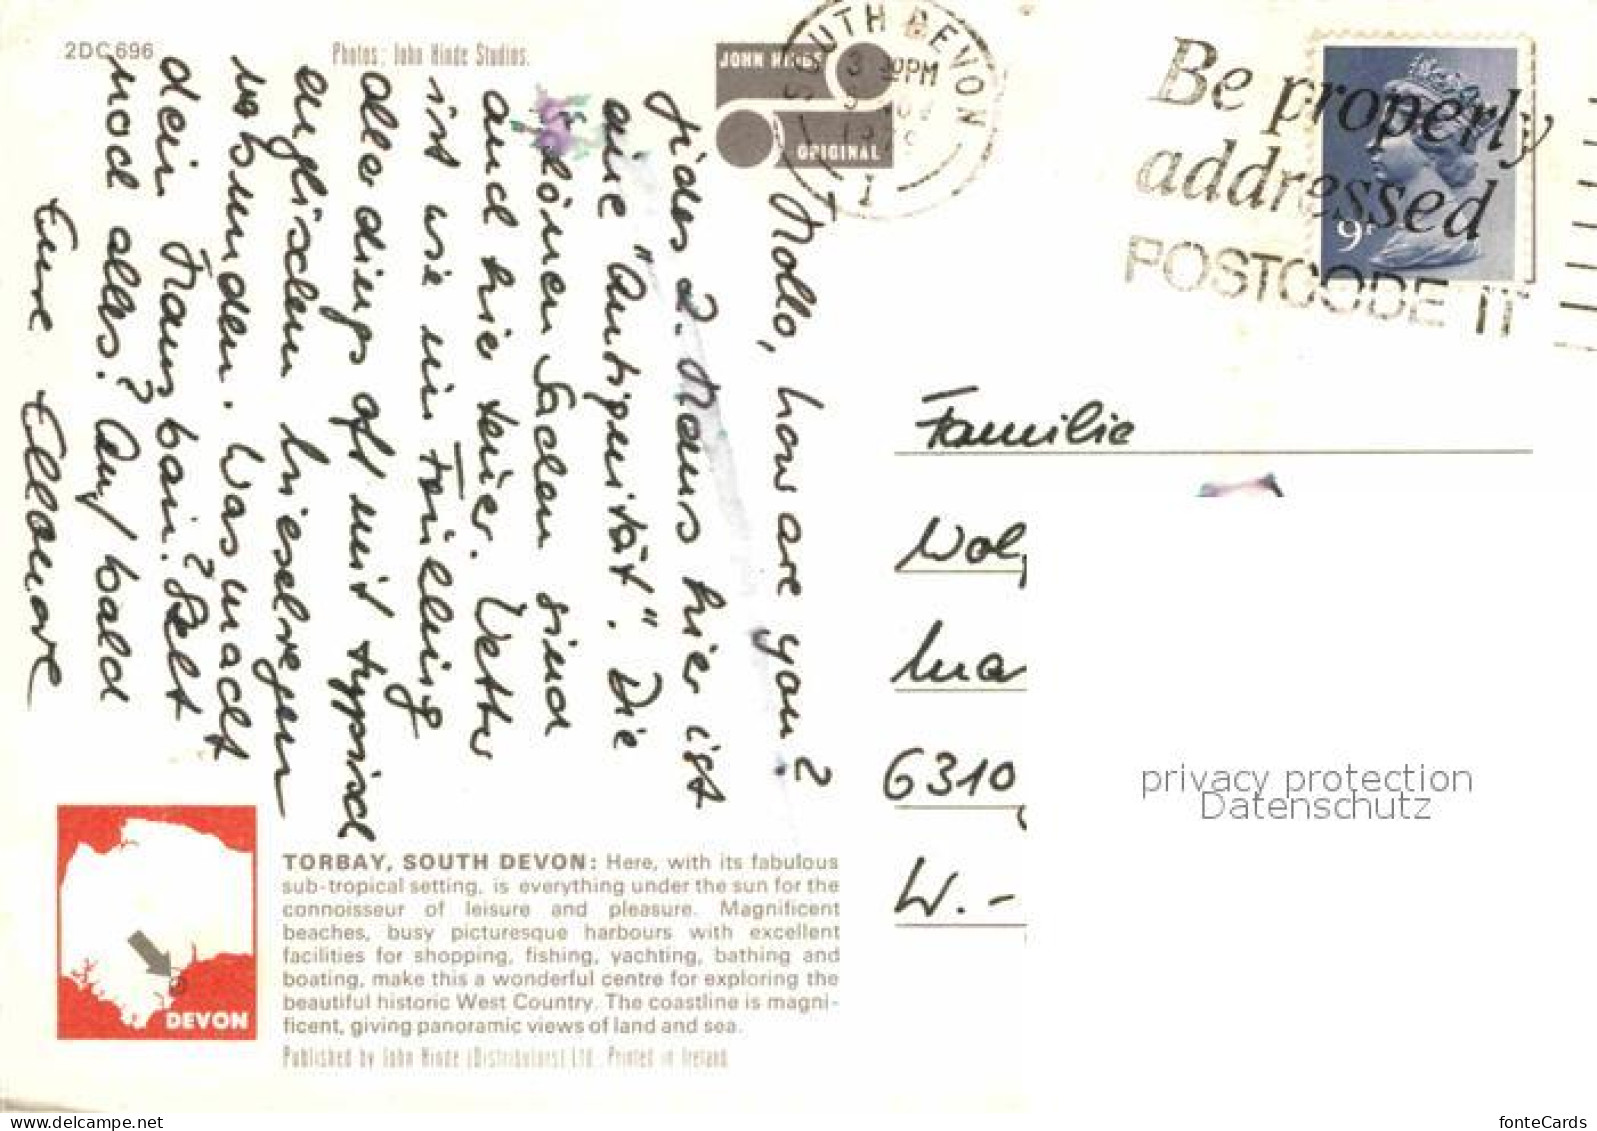 2DC696
Photos: John Hinde Studios.
JOHN HINDE
ORIGINAL
SOUTH DEVON
3 30PM
NOV
1
Be properly
addressed
POSTCODE IT
9P
Hallo, how are you?
Jedes 2. Haus hier ist
eine "Antiquität". Die
schönen Sachen sind
auch hier teuer. Wetter
ist wie im Frühling
allerdings oft mit typisch
englischem Nieselregen
verbunden. Was macht
dein Hausbau? Steht
noch alles? Auf bald
Eure Ellonore
Familie
Wol
Ma
6310
W.-
privacy protection
Datenschutz
TORBAY, SOUTH DEVON: Here, with its fabulous
sub-tropical setting, is everything under the sun for the
connoisseur of leisure and pleasure. Magnificent
beaches, busy picturesque harbours with excellent
facilities for shopping, fishing, yachting, bathing and
boating, make this a wonderful centre for exploring the
beautiful historic West Country. The coastline is magni-
ficent, giving panoramic views of land and sea.
Published by John Hinde (Distributors) Ltd. Printed in Ireland
DEVON
delcampe.net
fonteCards